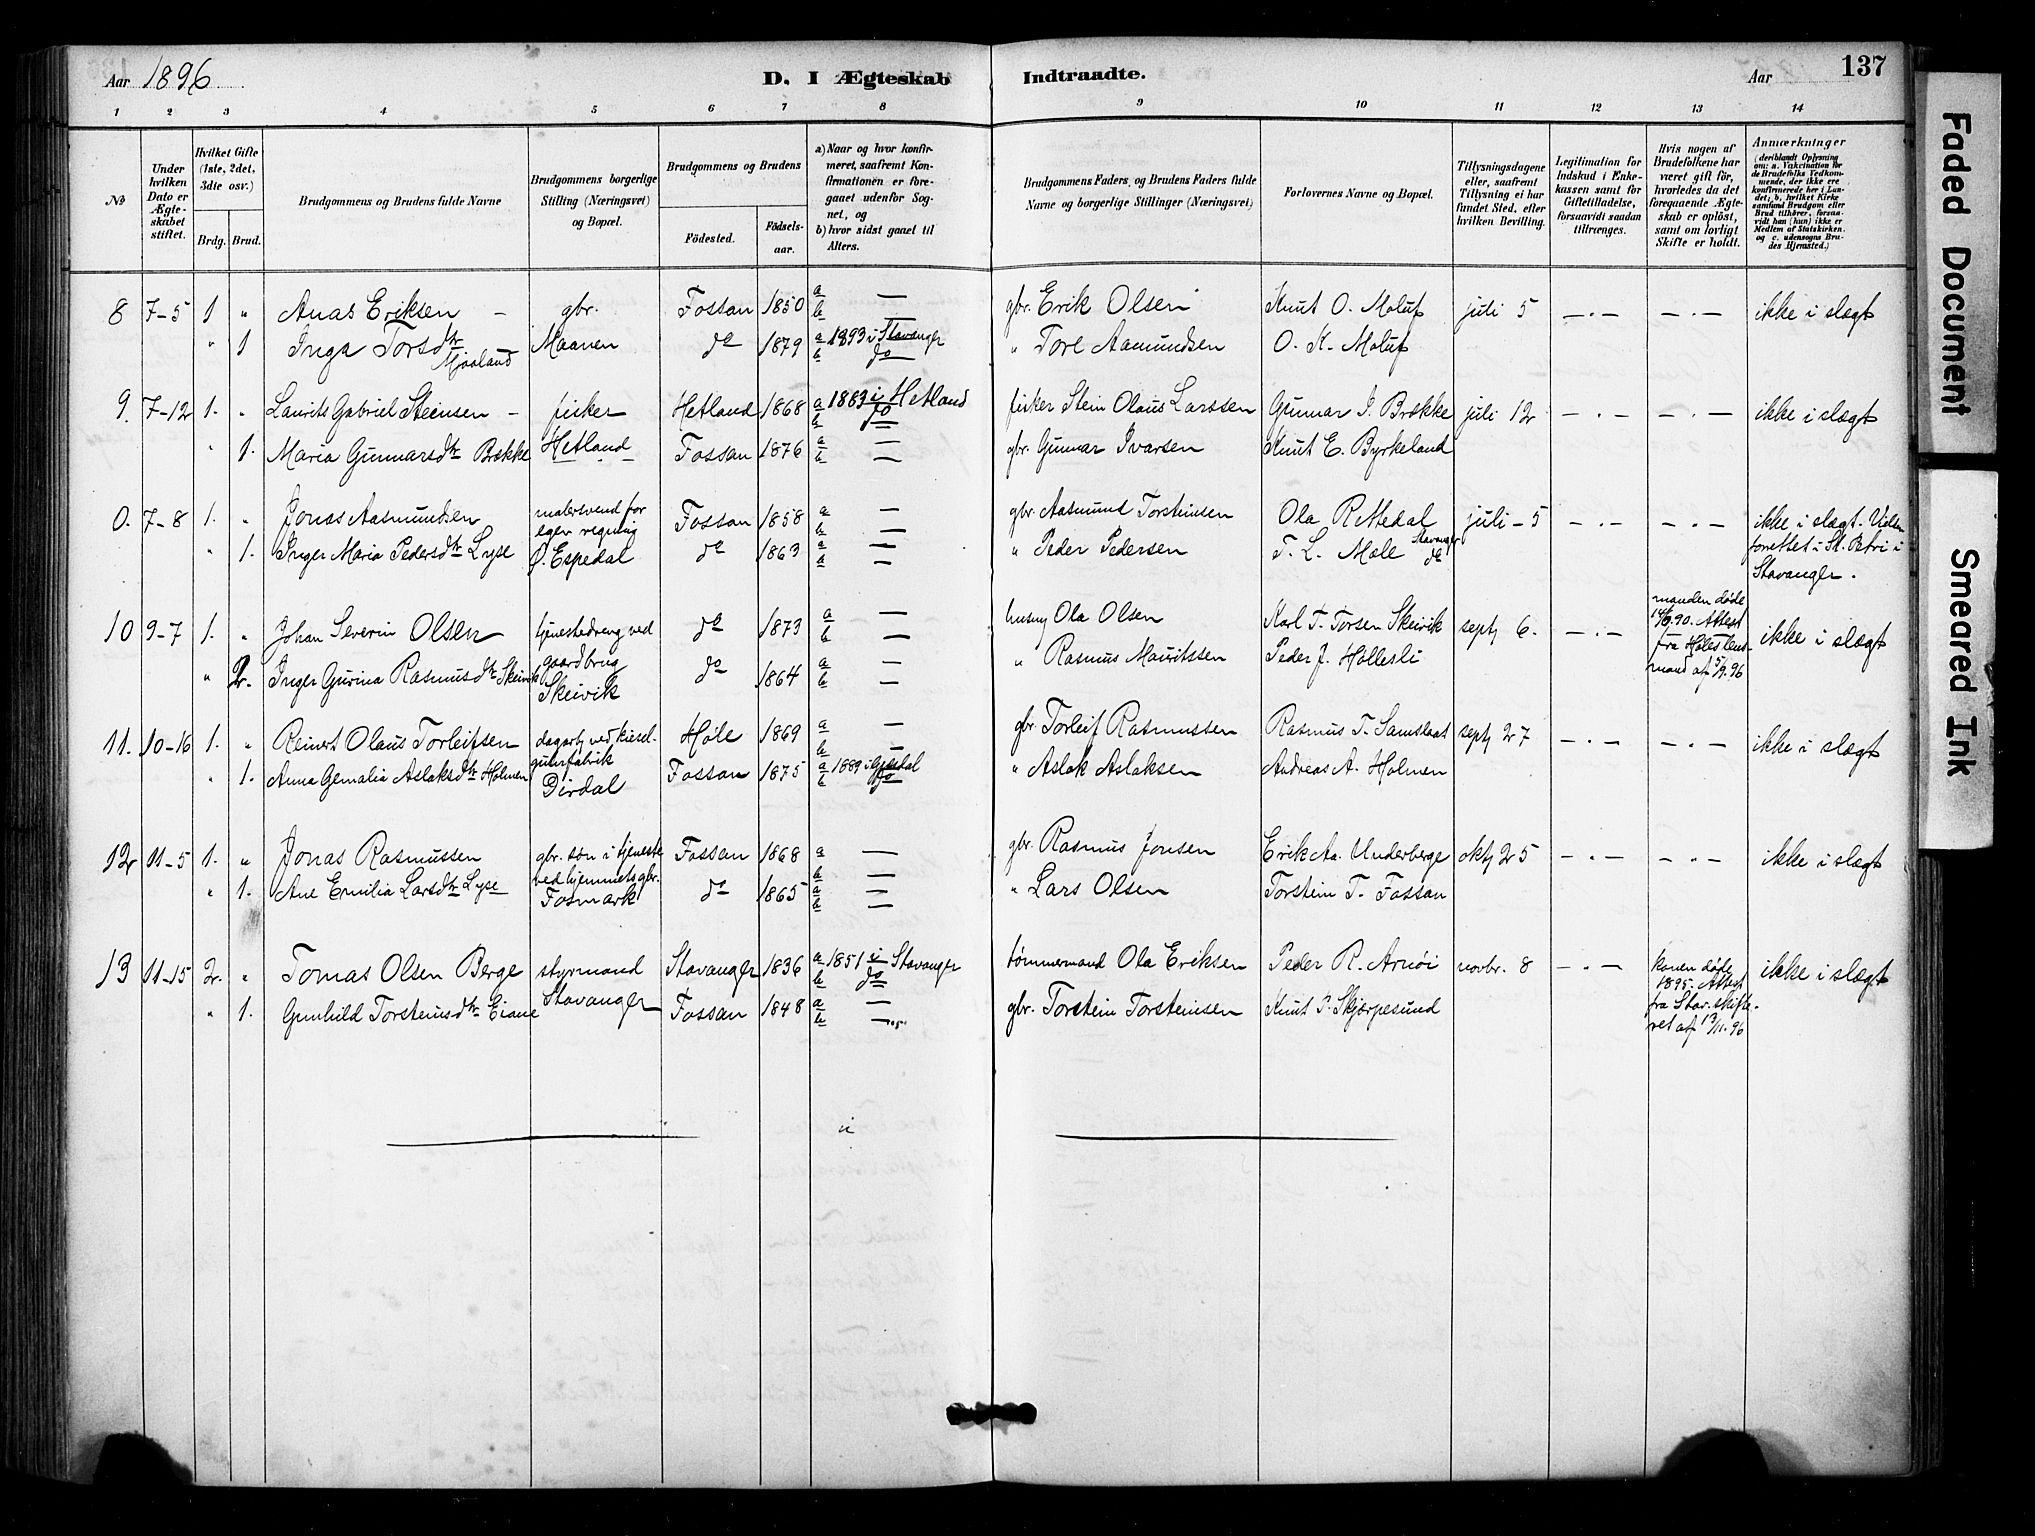 Aar 1896.
D. I Ægteskab Indtraadte.
Aar 137
1 2 3 4 5 6 7 8 9 10 11 12 13 14
No
Under hvilken Dato er Ægteskabet stiftet.
Hvilket Gifte (1ste, 2det, 3die osv.)
Brdg. Brud.
Brudgommens og Brudens fulde Navne
Brudgommens borgerlige Stilling (Næringsvei) og Bopæl.
Brudgommens og Brudens
Fødested. Fødsels-aar.
a) Naar og hvor konfirmeret, saafremt Konfirmationen er foregaaet udenfor Sognet, og
b) hvor sidst gaaet til Alters.
Brudgommens Faders, og Brudens Faders fulde Navne og borgerlige Stillinger (Næringsvei)
Forlovernes Navne og Bopæl.
Tillysningsdagene eller, saafremt Tillysning ei har fundet Sted, efter hvilken Bevilling.
Legitimation for Indskud i Enkekassen samt for Giftetilladelse, forsaavidt saadan tiltrænges.
Hvis nogen af Brudefolkene har været gift før, hvorledes da det foregaaende Ægteskab er opløst, samt om lovligt Skifte er holdt.
Anmærkninger
(deriblandt Oplysning om: a. Vakcination for de Brudefolks Vedkommende, der ikke ere konfirmerede her i Landet; b. hvilket Kirkesamfund Brudgom eller Brud tilhører, forsaavidt han (hun) ikke er Medlem af Statskirken, og c. udensogns Brudes Hjemsted.)
8 7-5 1 " Anas Eriksen - gbr. Fossan 1850 a — b — gbr. Erik Olsen Knut O. Moluf juli 5 —.— —.— ikke i slægt
" 1 Inga Torsdtr Mjøsland Maanen do 1879 a 1893 i Stavanger b do " Tore Aamundsen O. K. Moluf
9. 7-12 1. " Laurits Gabriel Steinsen - fisker Hetland 1868 a 1883 i Hetland b do fisker Stein Olaus Larssen Gunnar I. Brække juli 12 —.— —.— ikke i slægt
" 1. Maria Gunnarsdtr Brække Hetland Fossan 1876 a — b — gbr. Gunnar Ivarsen Knut E. Byrkeland
0. 7-8 1. " Jonas Aasmundsen malersvend for egen regning Fossan 1858 a — b — gbr. Aasmund Torsteinsen Ola Rettedal juli - 5 —.— —.— ikke i slægt. Vielsen forrettet i St. Petri i Stavanger.
" 1. Inger Maria Pedersdtr Lyse Ø. Espedal do 1863 a — b — " Peder Pedersen T. L. Mæle Stavanger do
10 9-7 1. " Johan Severin Olsen tjenestedreng ved gaardbrug do 1873 a — b — husmd Ola Olsen Karl T. Torsen Skeivik septj 6. —.— manden døde 14/6.90. Attest fra Høleslensmand af 5/9.96 ikke i slægt
" 2. Inger Gurina Rasmusdtr Skeivik Skeivik do 1864 a — b — " Rasmus Mauritssen Peder J. Hollesli
11. 10-16 1. " Reinert Olaus Torleifsen dagarb ved kiselguhrfabrik Høle 1869 a — b — gbr. Torleif Rasmussen Rasmus T. Samslaat septj 27 —.— —.— ikke i slægt
" 1. Anna Gemalia Aslaksdtr Holmen Dirdal Fossan 1875 a 1889 i Gjesdal b do " Aslak Aslaksen Andreas A. Holmen
12 11-5 1. " Jonas Rasmussen gbr. søn i tjeneste ved hjemmets gbr. Fossan 1868 a — b — gbr. Rasmus Jonsen Erik Aa. Underberge oktj 25 —.— —.— ikke i slægt
" 1. Ane Emilia Larsdtr Lyse Fosmark do 1865 a — b — " Lars Olsen Torstein T. Fossan
13 11-15 2. " Tomas Olsen Berge styrmand Stavanger 1836 a 1851 i Stavanger b do tømmermand Ola Eriksen Peder R. Arnøi novbr. 8 —.— konen døde 1895. Attest fra Stav. skifteret af 13/11.96 ikke i slægt
" 1. Gunhild Torsteinsdtr Eiane Stavanger Fossan 1848 a — b — gbr. Torstein Torsteinsen Knut P. Skjørpesund
Faded Document
Smeared Ink